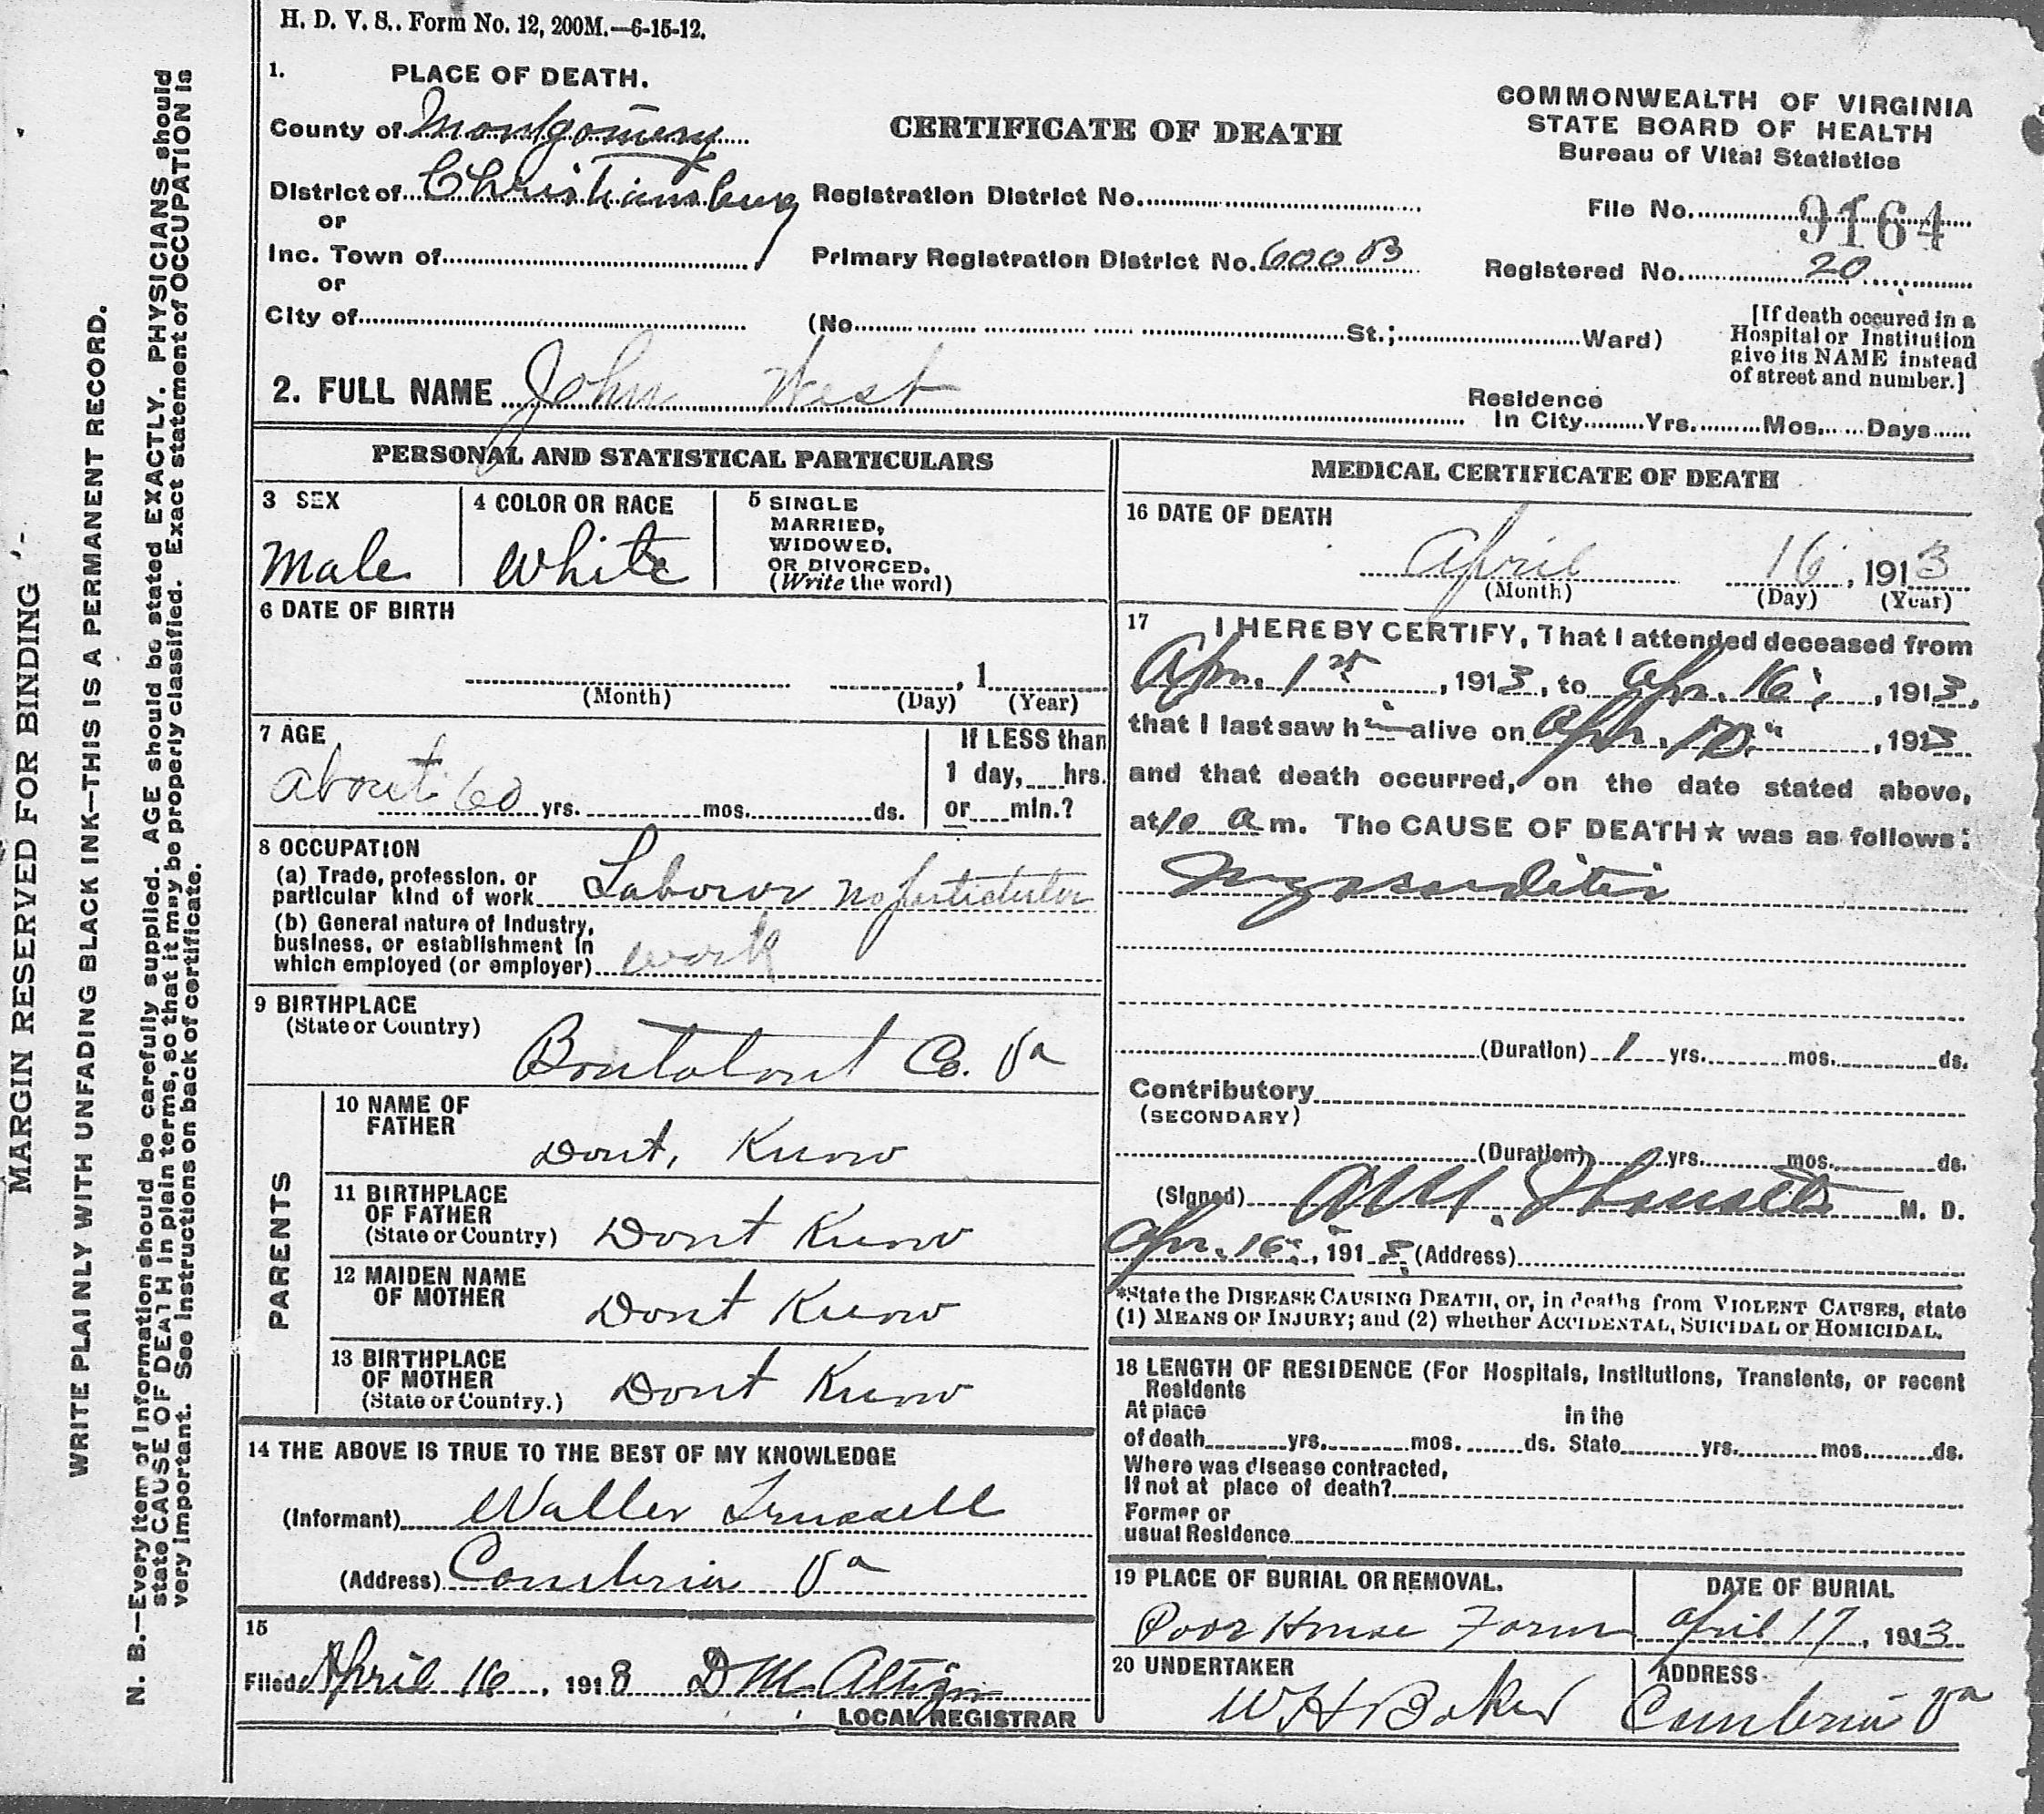 H. D. V. S.. Form No. 12, 200M.—6-15-12.
1. PLACE OF DEATH.
County of Montgomery
District of Christiansburg
or
Inc. Town of
or
City of
CERTIFICATE OF DEATH
COMMONWEALTH OF VIRGINIA
STATE BOARD OF HEALTH
Bureau of Vital Statistics
Registration District No.
File No. 9164
Primary Registration District No. 600 B
Registered No. 20
(No. St.; Ward)
[If death occured in a
Hospital or Institution
give its NAME instead
of street and number.]
2. FULL NAME John West
Residence
In City Yrs. Mos. Days
PERSONAL AND STATISTICAL PARTICULARS
3 SEX
Male
4 COLOR OR RACE
White
5 SINGLE
MARRIED,
WIDOWED,
OR DIVORCED.
(Write the word)
6 DATE OF BIRTH
, 1
(Month) (Day) (Year)
7 AGE
about 60 yrs. mos. ds.
If LESS than
1 day, hrs.
or min.?
8 OCCUPATION
(a) Trade, profession, or
particular kind of work Laborer no particular
(b) General nature of Industry,
business, or establishment in
which employed (or employer) work
9 BIRTHPLACE
(State or Country)
Boutatout Co. Va
PARENTS
10 NAME OF
FATHER
Dont, Know
11 BIRTHPLACE
OF FATHER
(State or Country) Dont Know
12 MAIDEN NAME
OF MOTHER
Dont Know
13 BIRTHPLACE
OF MOTHER
(State or Country.) Dont Know
14 THE ABOVE IS TRUE TO THE BEST OF MY KNOWLEDGE
(Informant) Waller
(Address) Cambria Va
15
Filed April 16, 1918 D M
LOCAL REGISTRAR
MEDICAL CERTIFICATE OF DEATH
16 DATE OF DEATH
April 16, 1913
(Month) (Day) (Year)
17 I HEREBY CERTIFY, That I attended deceased from
Apr. 1st, 1913, to Apr. 16, 1913,
that I last saw h alive on Apr. 10, 1913
and that death occurred, on the date stated above,
at 10 a m. The CAUSE OF DEATH★ was as follows:
(Duration) 1 yrs. mos. ds.
Contributory
(SECONDARY)
(Duration) yrs. mos. ds.
(Signed) M. D.
Apr. 16, 1913 (Address)
*State the DISEASE CAUSING DEATH, or, in deaths from VIOLENT CAUSES, state
(1) MEANS OF INJURY; and (2) whether ACCIDENTAL, SUICIDAL or HOMICIDAL.
18 LENGTH OF RESIDENCE (For Hospitals, Institutions, Transients, or recent
Residents
At place In the
of death yrs. mos. ds. State yrs. mos. ds.
Where was disease contracted,
If not at place of death?
Former or
usual Residence
19 PLACE OF BURIAL OR REMOVAL.
Poor House Farm
DATE OF BURIAL
April 17, 1913
20 UNDERTAKER
W H Baker
ADDRESS
Cambria Va
MARGIN RESERVED FOR BINDING
WRITE PLAINLY WITH UNFADING BLACK INK—THIS IS A PERMANENT RECORD.
N. B.—Every item of information should be carefully supplied. AGE should be stated EXACTLY. PHYSICIANS should
state CAUSE OF DEATH in plain terms, so that it may be properly classified. Exact statement of OCCUPATION is
very important. See instructions on back of certificate.